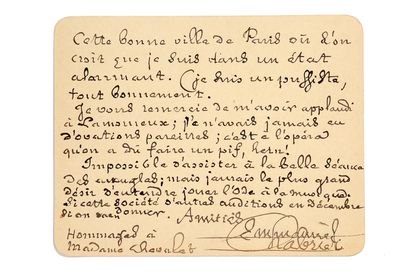 Cette bonne ville de Paris où l'on
croit que je suis dans un état
alarmant. (je suis un puffiste,
tout bonnement.
Je vous remercie de m'avoir applaudi
à Lamoureux; je n'avais jamais eu
d'ovations pareilles; c'est à l'opéra
qu'on a dû faire un pif, hein!
Impossible d'assister à la belle séance
des aveugles; mais jamais le plus grand
désir d'entendre jouer l'Ode à la musique
si cette société d'autres auditions en Décembre
donner. Amitiés
Hommages à
Madame Chevalet
Emmanuel
Chabrier